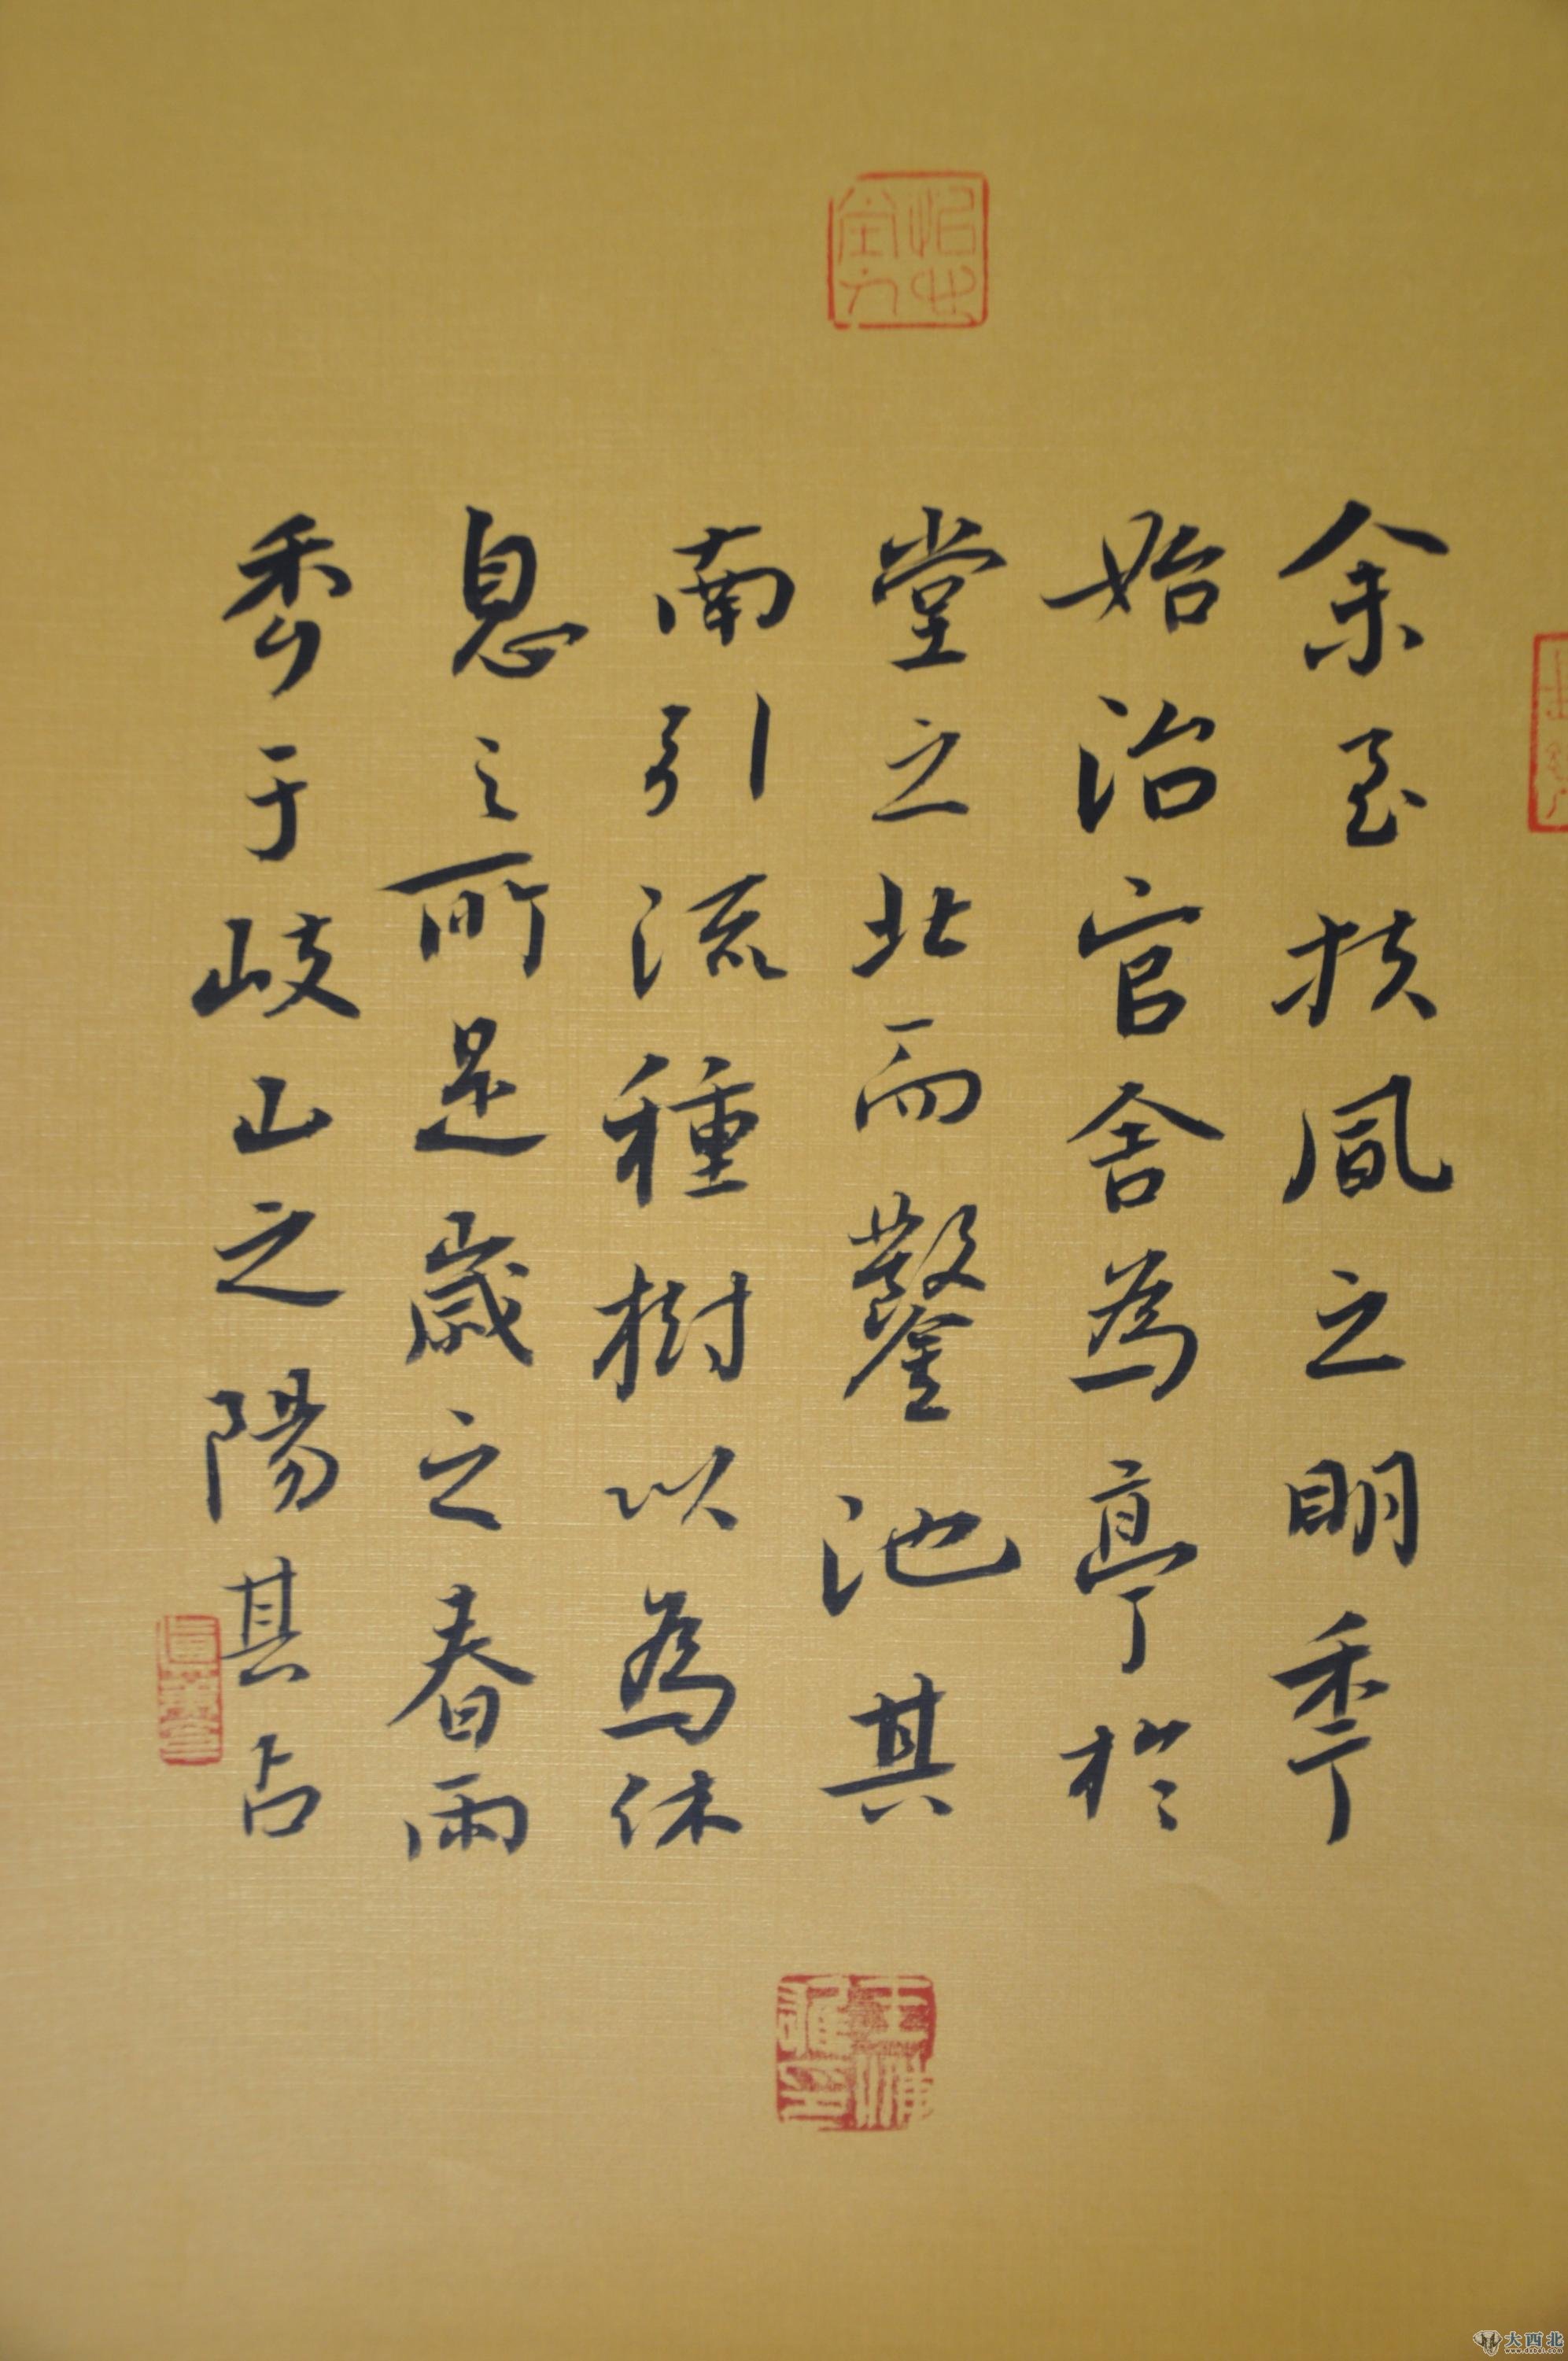 余至扶風之明秊
始治官舍為亭於
堂之北而鑿池其
南引流種樹以為休
息之所是歲之春雨
秀于岐山之陽其占
大西北